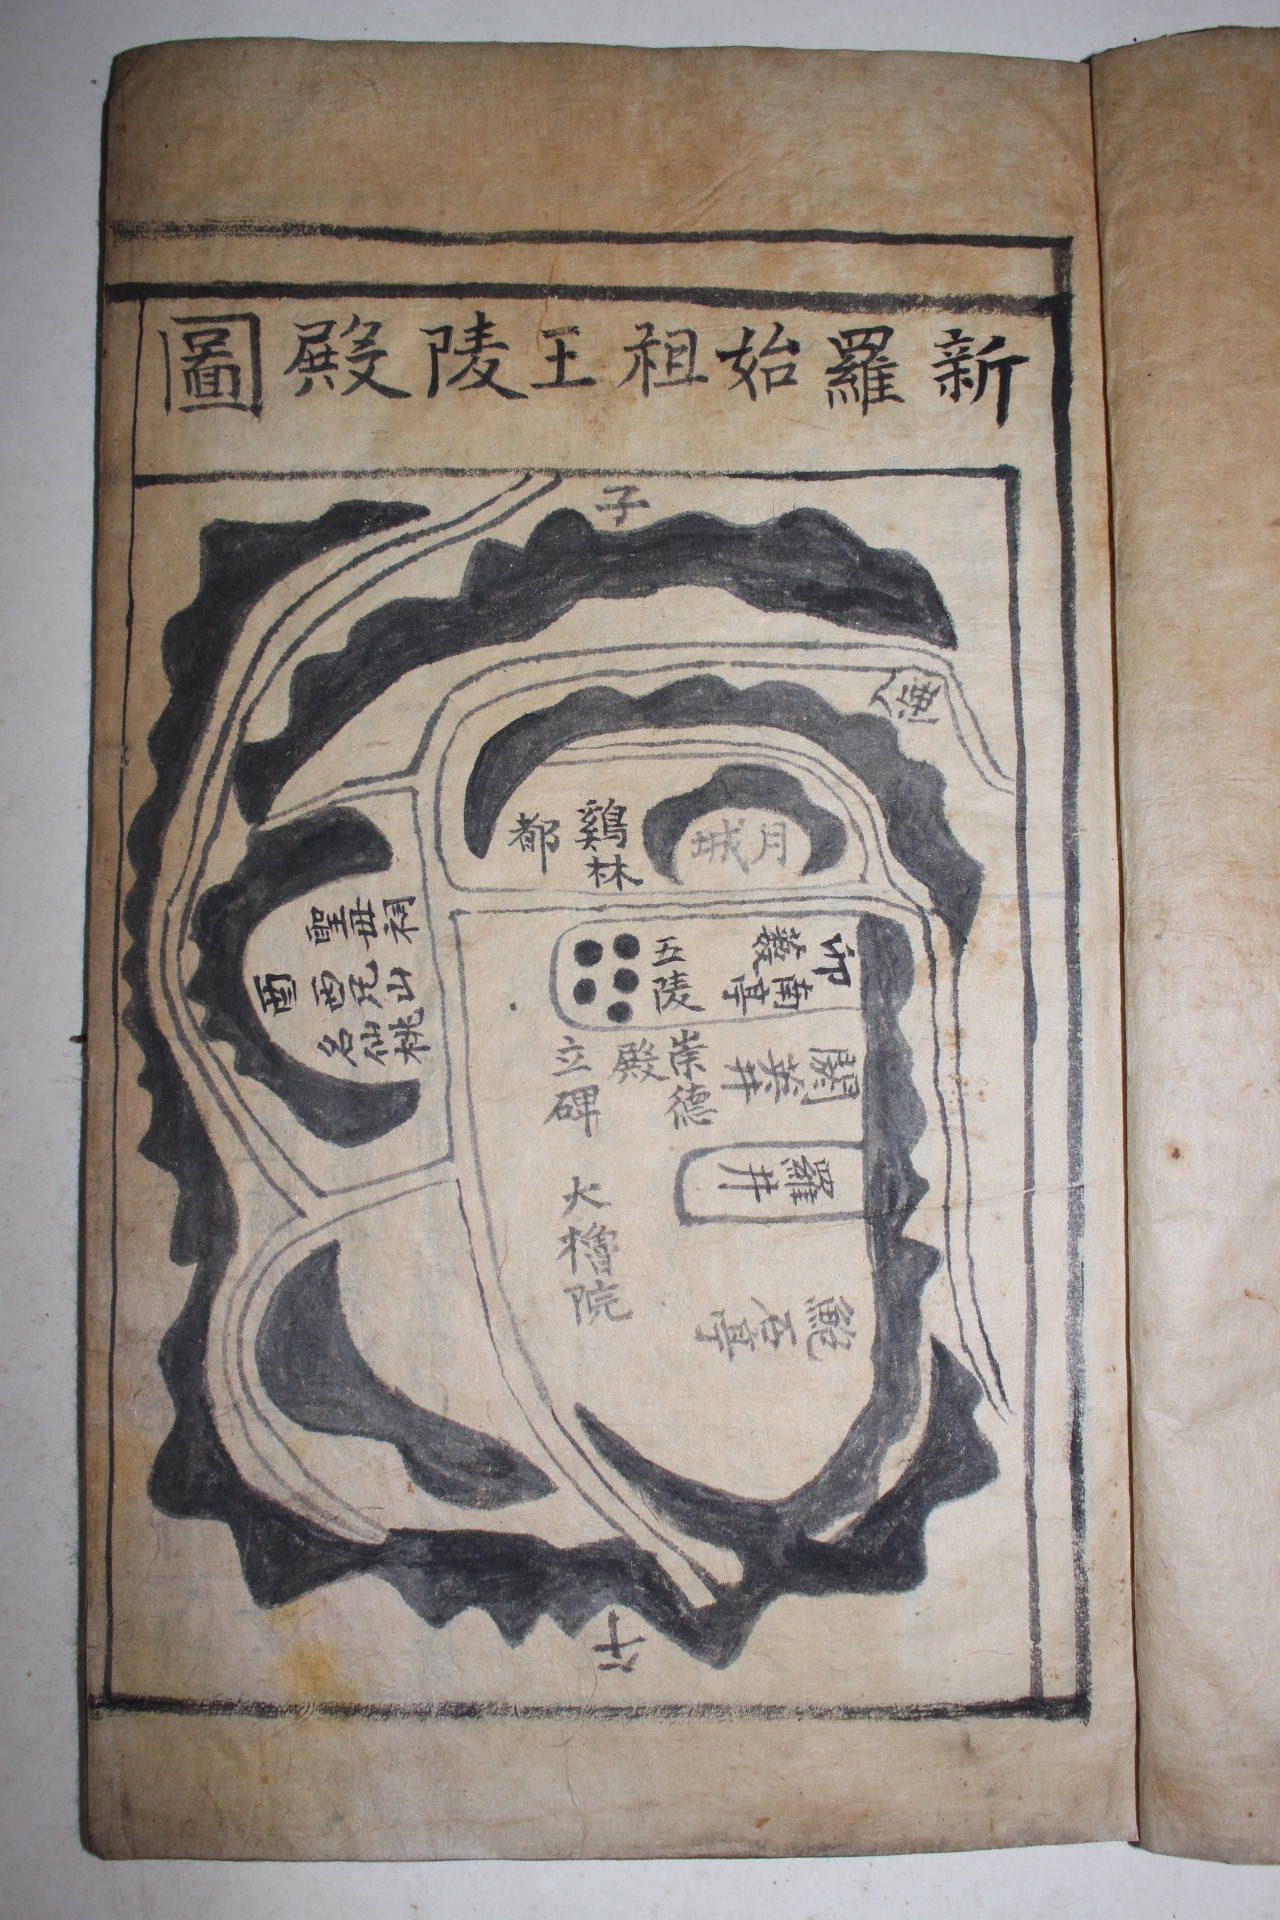 新羅始祖王陵殿圖
子
入海
月城
鷄林
都
聖母祠
西兄山
名仙桃
酉
卯
南亭
五陵
崇德殿
立碑
閼英井
羅井
大櫓院
鮑石亭
午